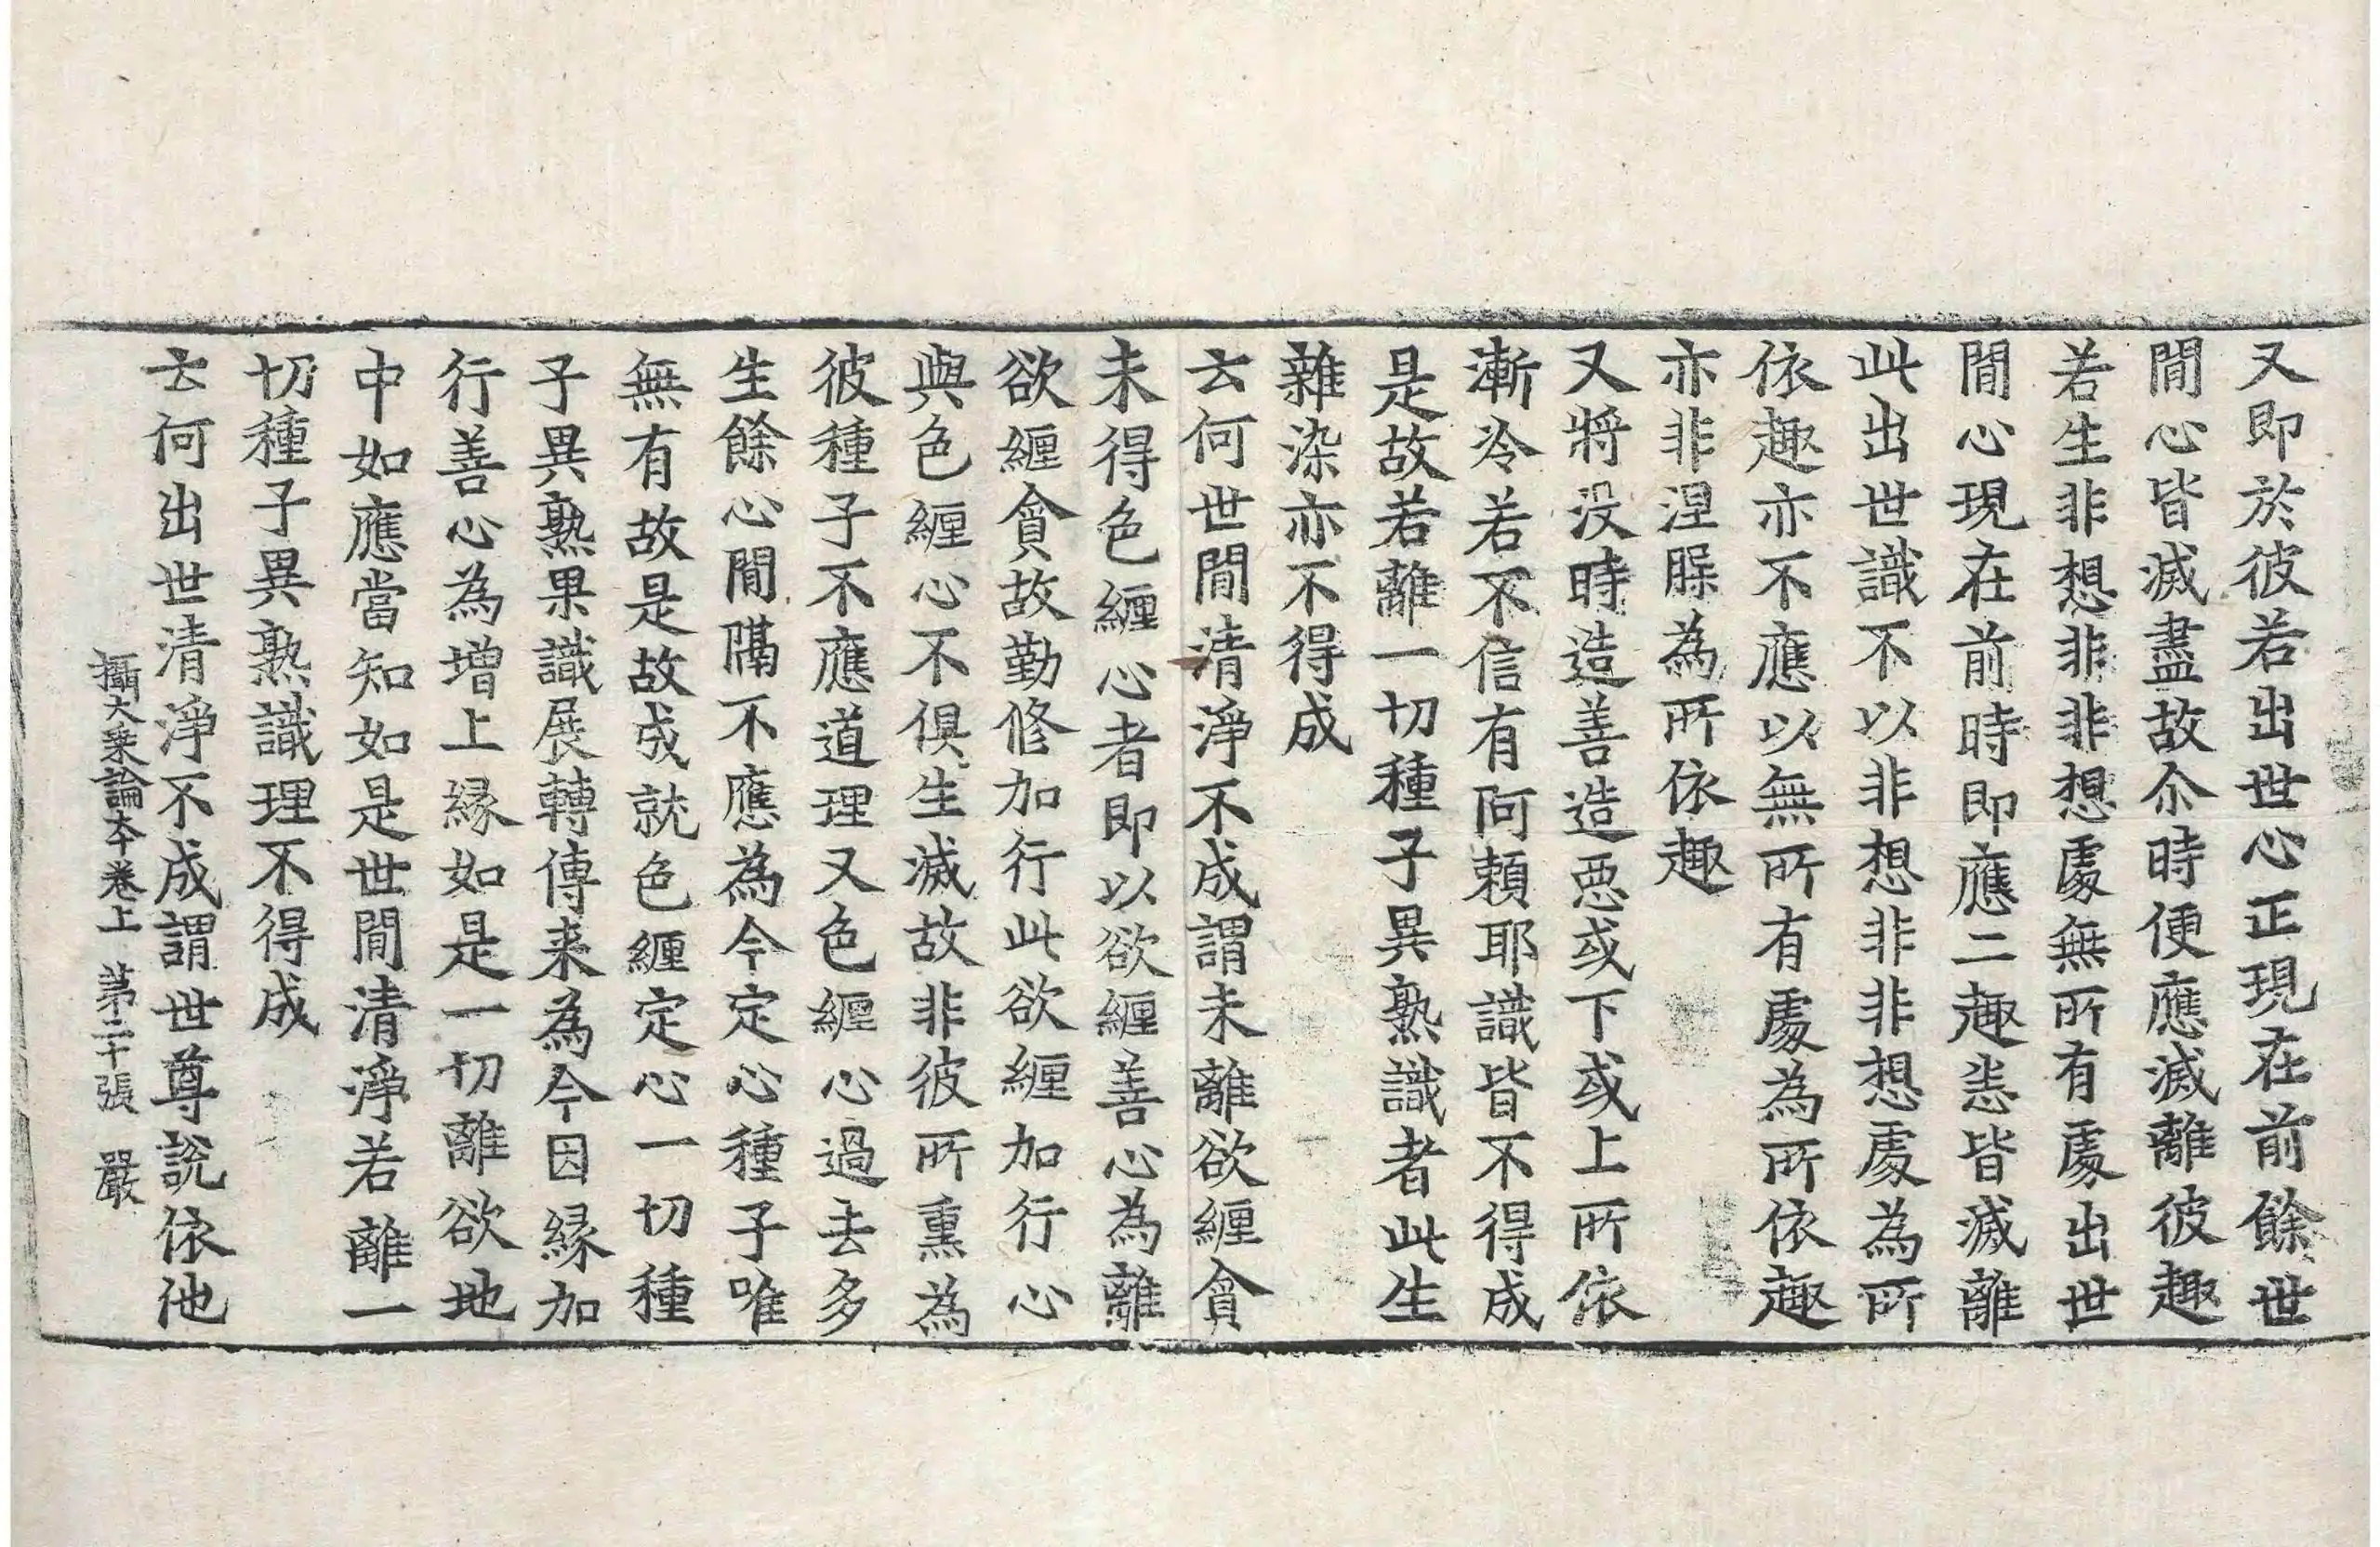 又即於彼若出世心正現在前餘世
間心皆滅盡故尒時便應滅離彼趣
若生非想非非想處無所有處出世
間心現在前時即應二趣悉皆滅離
此出世識不以非想非非想處為所
依趣亦不應以無所有處為所依趣
亦非涅槃為所依趣
又將没時造善造惡或下或上所依
漸冷若不信有阿賴耶識皆不得成
是故若離一切種子異熟識者此生
雜染亦不得成
云何世間清淨不成謂未離欲纏貪
未得色纏心者即以欲纏善心為離
欲纏貪故勤修加行此欲纏加行心
與色纏心不俱生滅故非彼所熏為
彼種子不應道理又色纏心過去多
生餘心間隔不應為今定心種子唯
無有故是故成就色纏定心一切種
子異熟果識展轉傳来為今因緣加
行善心為增上緣如是一切離欲地
中如應當知如是世間清淨若離一
切種子異熟識理不得成
云何出世清淨不成謂世尊說依他
攝大乘論本卷上 苐二十張 嚴